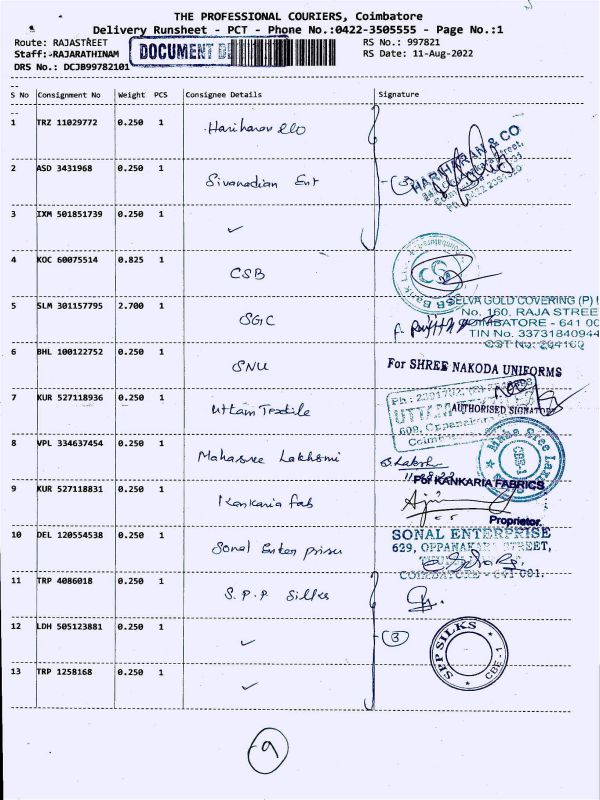 THE PROFESSIONAL COURIERS, Coimbatore
Delivery Runsheet - PCT - Phone No.:0422-3505555 - Page No.:1
Route: RAJASTREET RS No.: 997821
Staff:-RAJARATHINAM DOCUMENT D RS Date: 11-Aug-2022
DRS No.: DCJB99782101
S No Consignment No Weight PCS Consignee Details Signature
1 TRZ 11029772 0.250 1
HARIHARAN & CO
2 ASD 3431968 0.250 1
Sivanadian Ent (3)
3 IXM 501851739 0.250 1
✓
4 KOC 60075514 0.825 1
CSB
5 SLM 301157795 2.700 1 SELVA GOLD COVERING (P)
SGC No. 160, RAJA STREE
COIMBATORE - 641 00
TIN No. 33731840944
CST No: 264169
6 BHL 100122752 0.250 1 For SHREE NAKODA UNIFORMS
SNU
7 KUR 527118936 0.250 1
Uttam Textile AUTHORISED SIGNATORY
609, Oppanakar
Coimb
8 VPL 334637454 0.250 1
Mahasree Lakhsmi
For KANKARIA FABRICS
9 KUR 527118831 0.250 1
Kankaria fab
Proprietor.
10 DEL 120554538 0.250 1 SONAL ENTERPRISE
Sonal Enterprises 629, OPPANAKAR STREET,
COIMBATORE - 641 001.
11 TRP 4086018 0.250 1
S.P.P Silks
12 LDH 505123881 0.250 1
✓ (3) SPP SILKS
CBE-1
13 TRP 1258168 0.250 1
✓
9